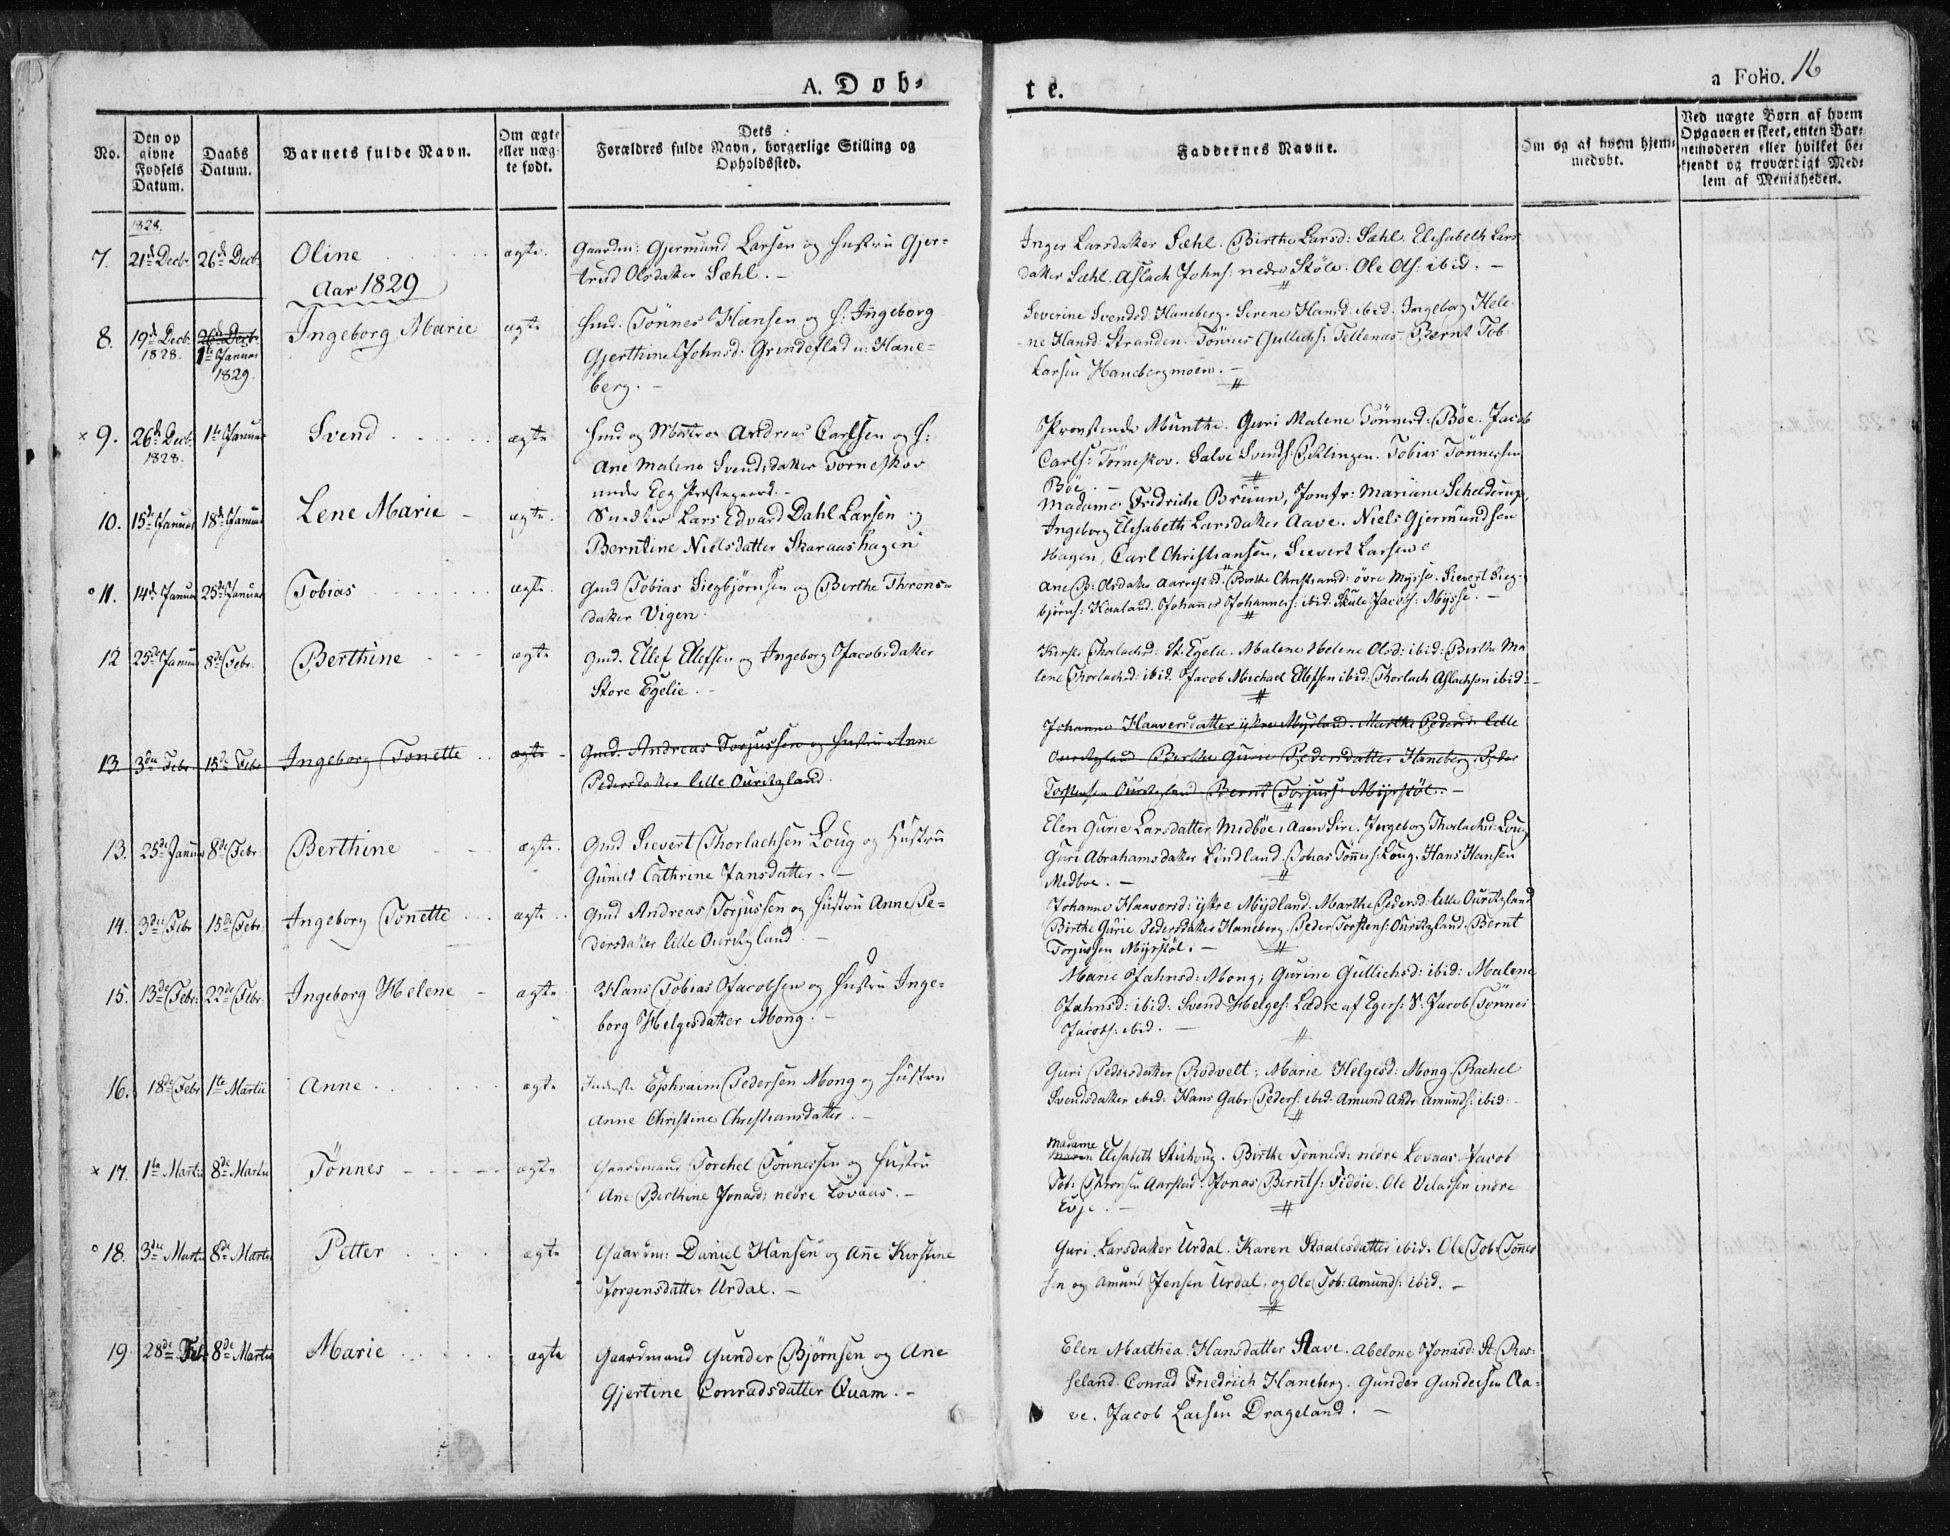 A. Døb-
te.
a Folio. 16
No.
Den op givne Fødsels Datum.
Daabs Datum.
Barnets fulde Navn.
Om ægte eller uæg- te født.
Dets Forældres fulde Navn, borgerlige Stilling og Opholdssted.
Faddernes Navne.
Om og af hvem hjem- medøbt.
Ved uægte Børn af hvem Opgaven er skeet, enten Bar- nemoderen eller hvilket be- kjendt og troværdigt Med- lem af Menigheden.
1828.
7. 21de Decb. 26de Decb. Oline ægte. Gaardm: Gjermund Larsen og Hustru Gjer-
trud Olsdatter Sæhl. -
Inger Larsdatter Sæhl. Birthe Larsd: Sæhl. Elisabeth Lars
datter Sæhl. Aslach Johns: nedre Støle. Ole Ols: ibid. -
Aar 1829
8. 19de Decb. 1828. 26de Decb. 1te Januar 1829. Ingeborg Marie ægte Gmd. Tönnes Hansen og H: Ingeborg
Gjerthine Johnsd: Grindeflad u: Hane-
berg. -
Severine Svendsd. Haneberg. Sirene Hansd: ibid. Ingeborg Hele-
ne Hansd: Stranden. Tönnes Gullichs: Tellenæs. Bernt Tob:
Larsen Hanebergmoen. -
× 9. 26de Decb. 1828. 1te Januar Svend ægte Gmd og Matros Andreas Carlsen og H:
Ane Malene Svendsdatter Torneskov
under Egg Præstegaard. -
Provstinde Munthe. Guri Malene Tönnesd: Bøe. Jacob
Carls: Torneskov. Salve Svends: Eklingen. Tobias Tönnessen
Bøe. -
10. 15de Januar 18de Januar Lene Marie - ægte. Lars Edvard Dahl Larsen og
Berntine Nielsdatter Skaraashagen
Madame Fredriche Bruun, Jomfr: Mariane Schelderup,
Ingeborg Elisabeth Larsdatter Aave. Niels Gjermundsen
Hagen, Carl Christiansen, Sievert Larsen
° 11. 14de Januar 25de Januar Tobias ægte. Gmd Tobias Siegbjørnsen og Berthe Throns-
datter Vigen.
Ane B: Olsdatter Aarrestad. Birthe Christiansd: övre Mysse. Sievert Sieg-
bjørns: Haaland. Johannes Johanness: ibid. Skule Jacobs: Mysse. -
12 25de Januar 8de Febr. Berthine ægte Gmd. Ellef Ellefsen og Ingeborg Jacobsdatter
Store Egelie. -
Kirsti Thorlachsd: St: Egelie. Malene Helene Olsd: ibid: Birthe Ma
lene Thorlachsd: ibid. Jacob Michael Ellefsen ibid: Thorlach Aslachsen ibid: -
13 3die Febr. 15de Febr Ingeborg Tonette ægte Gmd. Andreas Torjussen og Hustru Anne
Pedersdatter lille Ouritzland.
Johanne Haaversdatter ystre Mydland. Marthe Pedersd: lille
Ouritzland Berthe Gurie Pedersdatter Haneberg. Peder
Torstensen Ouritzland Bernt Torjus: Myrstøl. -
13. 25de Januar 8de Febr Berthine ægte. Gmd Sievert Thorlachsen Loug og Hustru
Gunild Cathrine Jansdatter. -
Elen Gurie Larsdatter Midbøe, Aaen Sire. Ingeborg Thorlachsd: Loug
Guri Abrahamsdatter Lindland. Tobias Tönnes: Loug. Hans Hansen
Midboe. -
14. 3die Febr 15de Febr. Ingeborg Tonette ægte Gmd Andreas Torjussen og Hustru Anne Pe-
dersdatter lille Ouritzland. -
Johanne Haaversd: ystre Mydland. Marthe Pedersd: lille Ouritzland
Birthe Gurie Pedersdatter Haneberg. Peder Torstens: Ouritzland. Bernt
Torjussen Myrstøl. -
15. 13de Febr: 22de Febr. Ingeborg Helene - ægte. Hans Tobias Jacobsen og Hustru Inge-
borg Helgesdatter Mong. -
Marie Jahnsd: Mong; Gurine Gullichsd: ibid: Malene
Jahnsd: ibid: Svend Helges: Lædre af Egers: S: Jacob Tönnes
Jacobs: ibid. -
16. 18de Febr 1te Martii Anne ægte Inderste Ephraim Pedersen Mong og Hustru
Anne Christine Christiansdatter. -
Guri Pedersdatter Rodvelt; Marie Helgesd: Mong. Rachel
Svendsdatter ibid: Hans Gabr: Peders: ibid. Amund Andr: Amunds: ibid: -
× 17. 1te Martii 8de Martii Tönnes ægte Gaardmand Torchel Tönnessen og Hustru
Ane Berthine Jonasd: nedre Lovaas. -
Madame Maren Elisabeth. Birthe Tönnesd: nedre Lovaas. Jacob
Tob: Thronsen Aarstad. Jonas Bernts: Fiddie. Ole Velassen indre
Eoje. -
° 18. 3die Martii 8de Martii Petter ægte Gaardm: Daniel Hansen og Ane Kirstine
Jørgensdatter Urdal. -
Guri. Larsdatter Urdal. Karen Staalesdatter ibid. Ole Tob: Tönnes
sen og Amund Jensen Urdal, og Ole Tob: Amunds: ibid. -
19. 28de Febr 8de Martii Marie ægte Gaardmand Gunder Bjørnsen og Ane
Gjertine Conradsdatter Quam. -
Elen Marthea Hansdatter Aave. Abelone Jonasd: St: Ros-
seland. Conrad Friedrich Haneberg. Gunder Gundersen Aa-
ve. Jacob Larsen Drageland. -